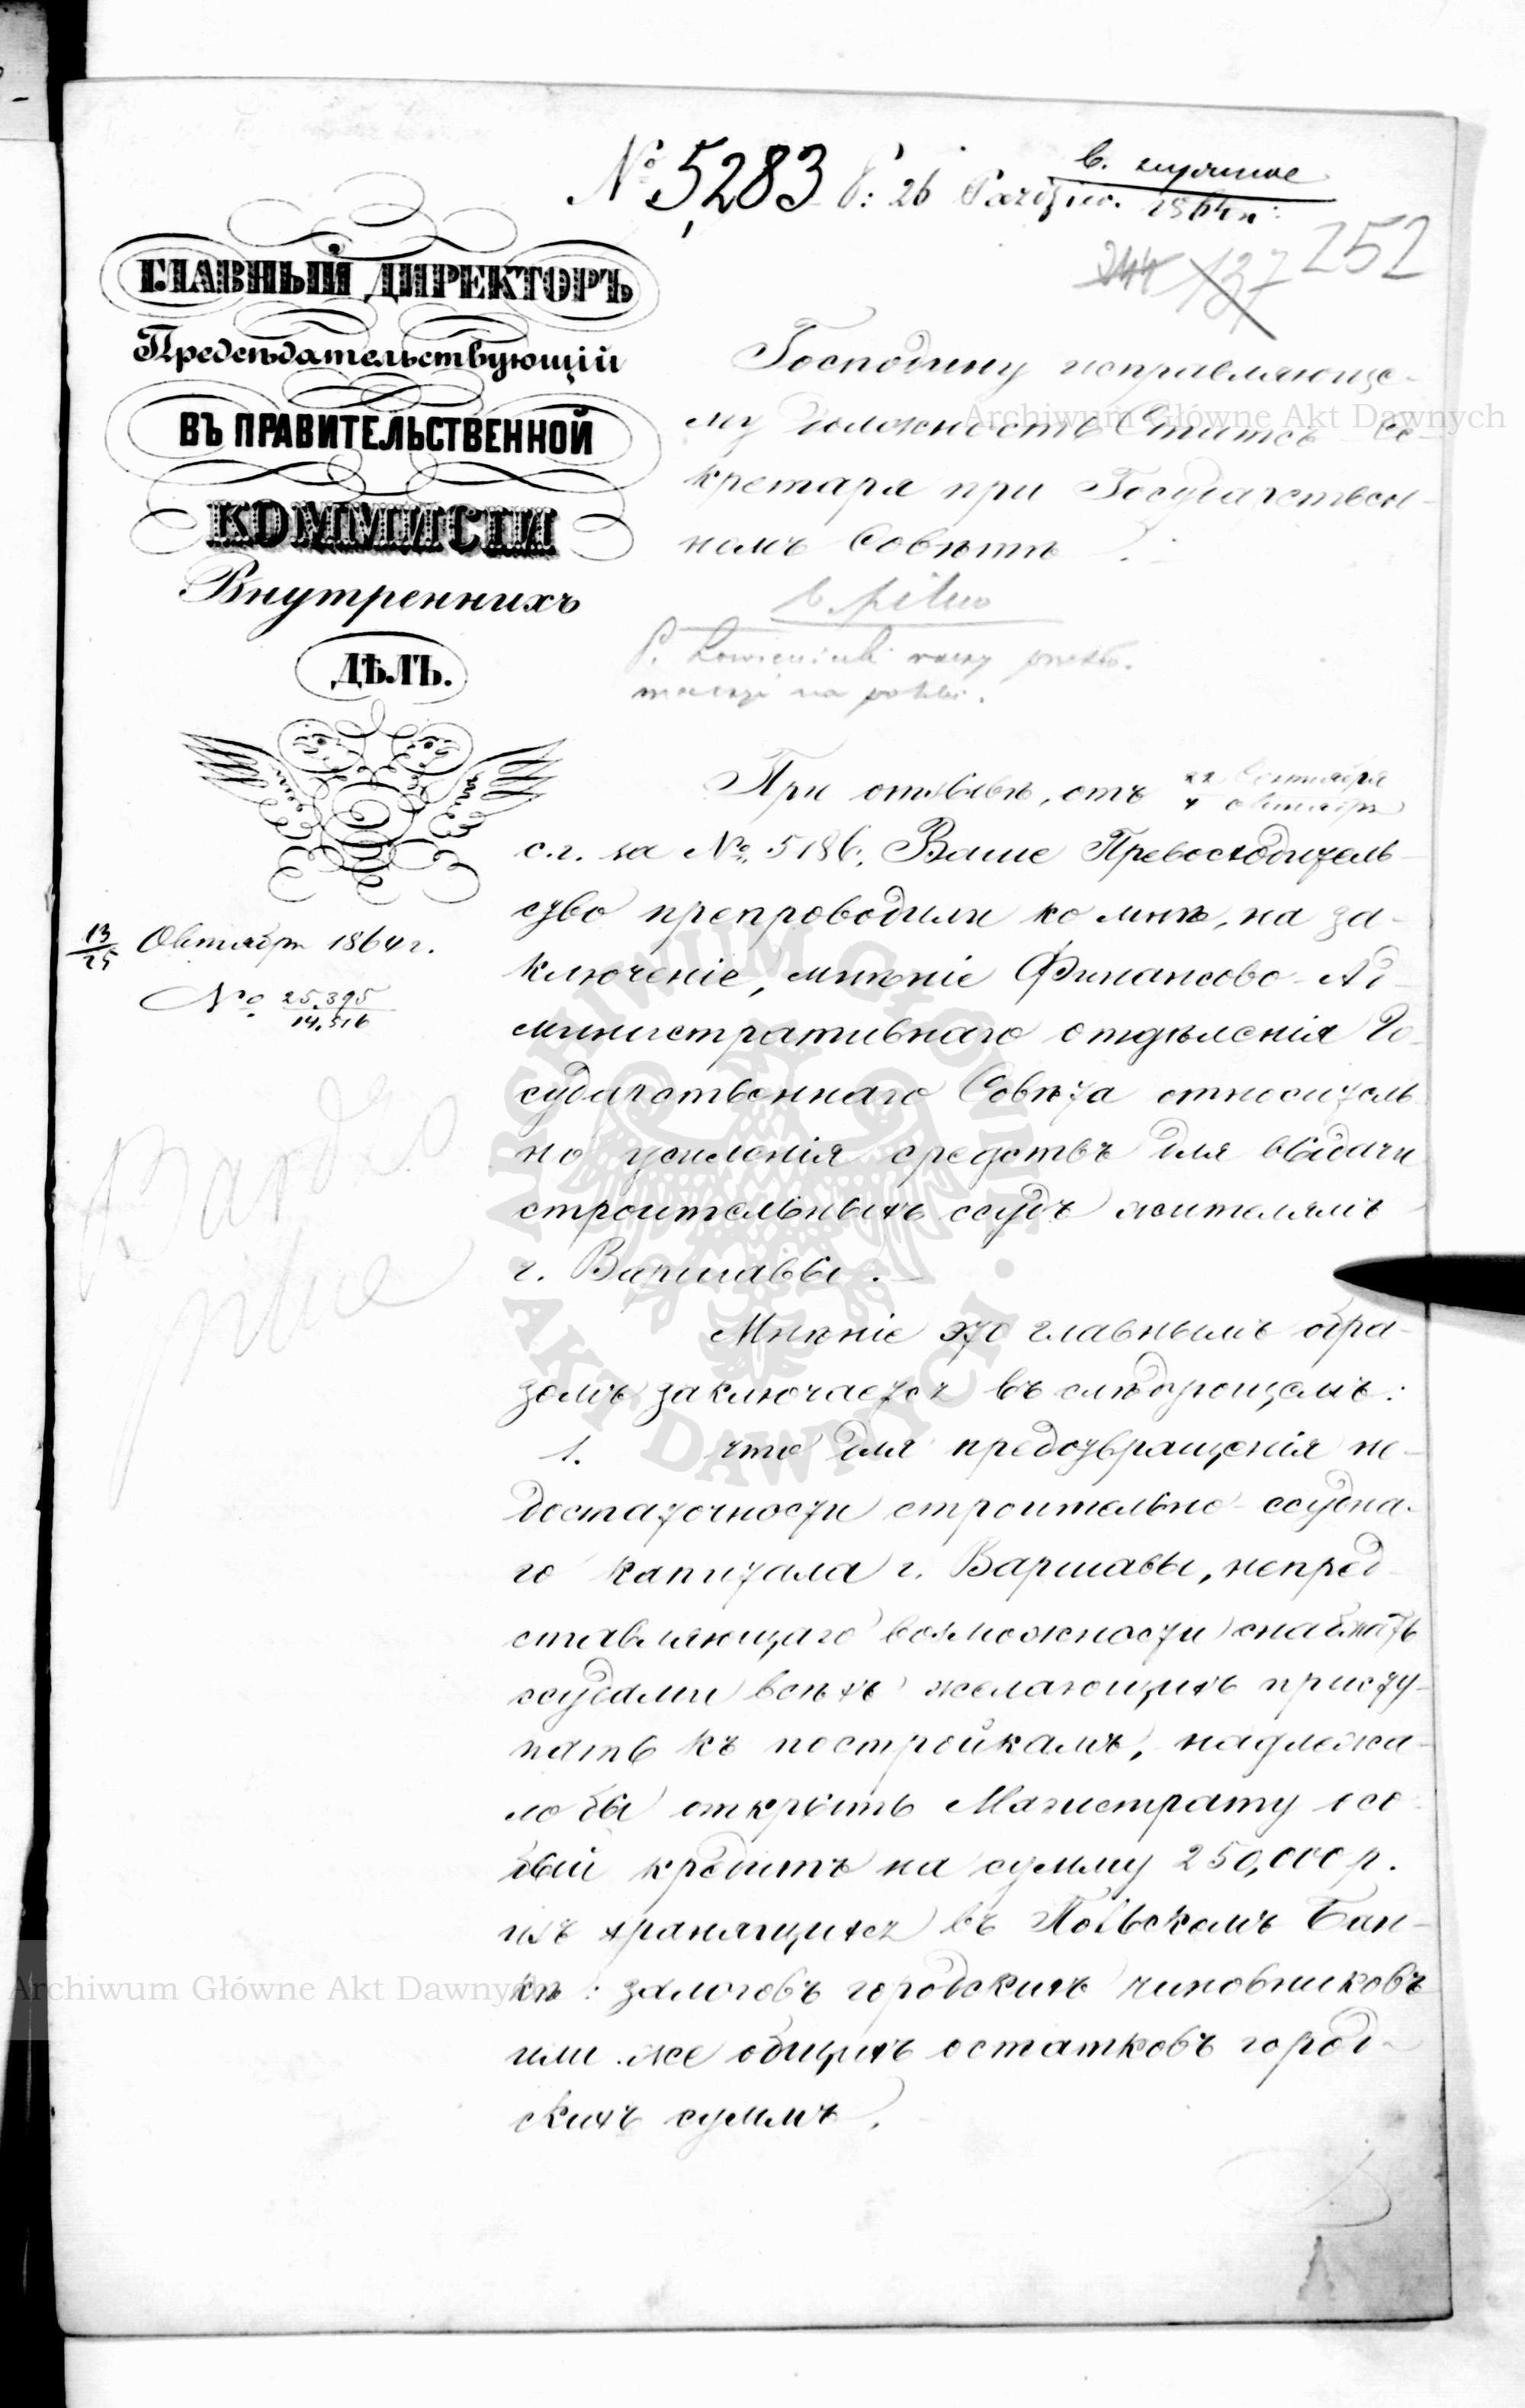 № 5,283 26 1864
252
244 137
ГЛАВНЫЙ ДИРЕКТОРЪ
Предсѣдательствующій
ВЪ ПРАВИТЕЛЬСТВЕННОЙ
КОММИСІИ
Внутреннихъ
ДѢЛЪ.
13/25 Октября 1864 г.
№ 25.395/14.516
Bardzo
pilne
Господину исправляюще-
му должность Статсъ Се-
кретаря при Государствен-
номъ Совѣтѣ.
b. pilno
При отзывѣ, отъ 22 Сентября/4 Октября
с.г. за № 5186, Ваше Превосходитель-
ство препроводили ко мнѣ, на за-
ключеніе, мнѣніе Финансово-Ад-
министративнаго отдѣленія Го-
сударственнаго Совѣта относитель-
но усиленія средствъ для выдачи
строительныхъ ссудъ жителямъ
г. Варшавы.
Мнѣніе это главнымъ обра-
зомъ заключается въ слѣдующемъ:
1. что для предотвращенія не-
достаточности строительно-ссудна-
го капитала г. Варшавы, непред-
ставляющаго возможности снабжать
ссудами всѣхъ желающихъ присту-
пать къ постройкамъ, надлежа-
ло бы открыть Магистрату осо-
бый кредитъ на сумму 250,000 р.
изъ хранящихся въ Польскомъ Бан-
кѣ: залоговъ городскихъ чиновниковъ
или же общихъ остатковъ город-
скихъ суммъ.
Archiwum Główne Akt Dawnych
Archiwum Główne Akt Dawnych
ARCHIWUM GŁÓWNE AKT DAWNYCH